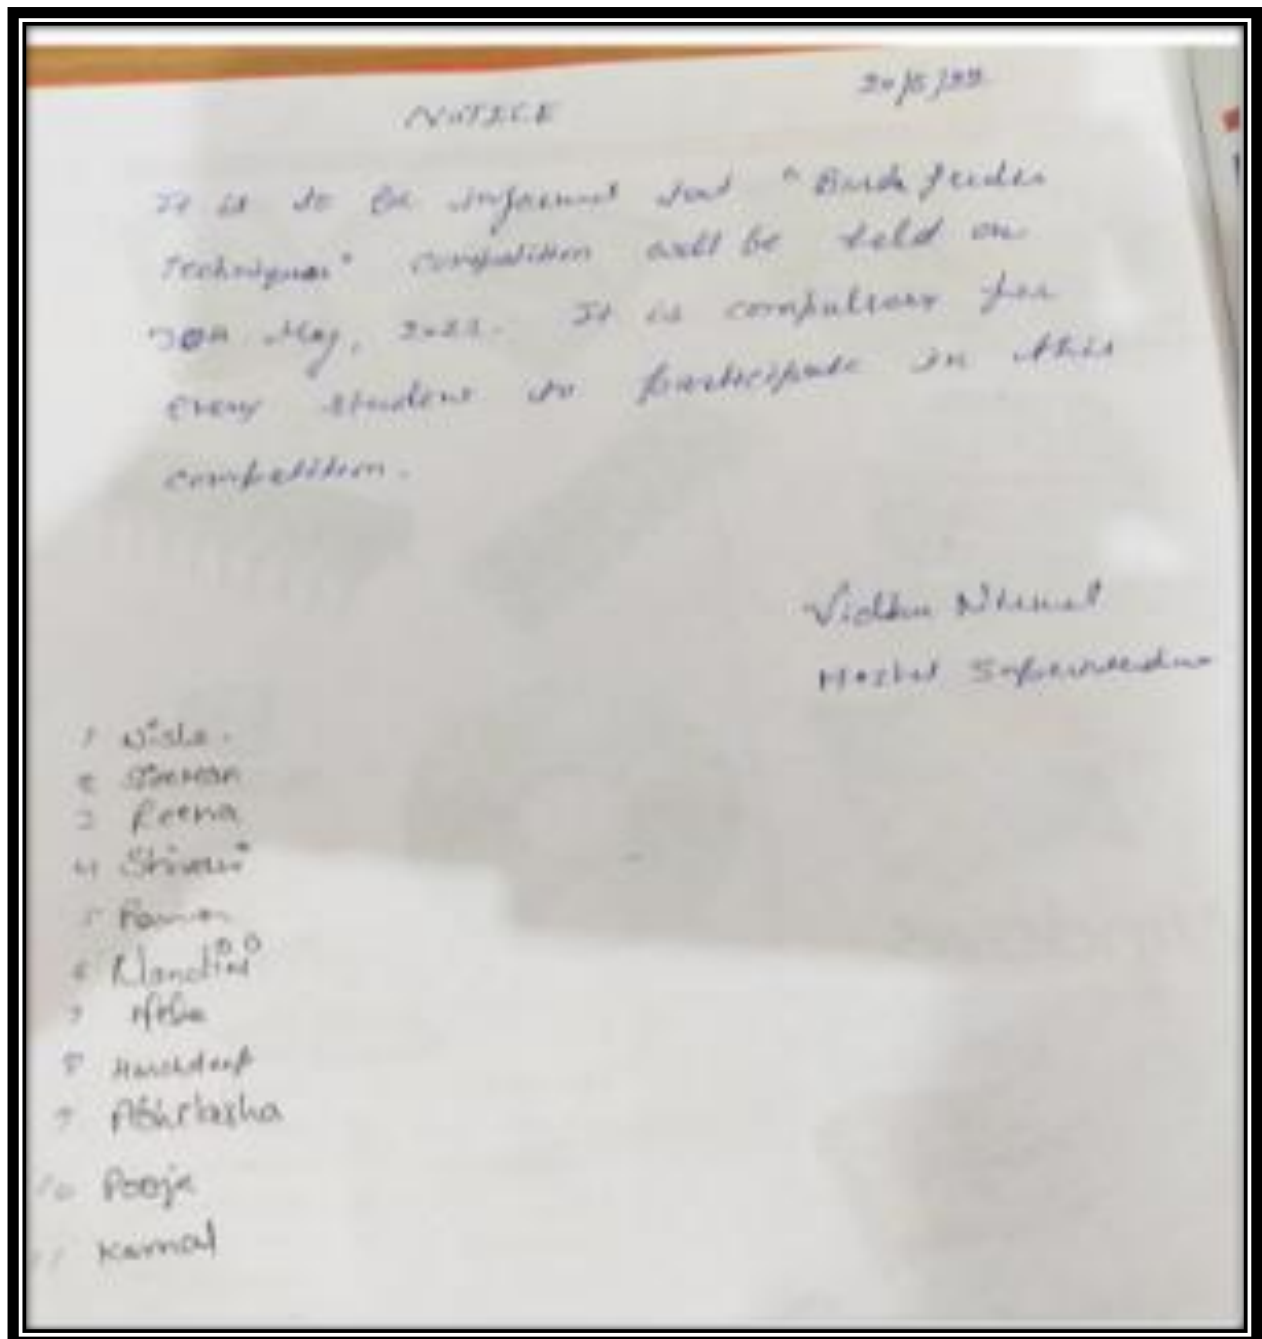 NOTICE
20/5/22
It is to be informed that "Birds feeder
Techniques" competition will be held on
May, 2022. It is compulsory for
every student to participate in this
competition.
Vidhu
Hostel Superintendent
1 Nisha.
2 Simran
3 Reena
4 Shivani
5
6 Nandini
7 Nisha
8 Harshdeep
9 Abhilasha
10 Pooja
11 Komal